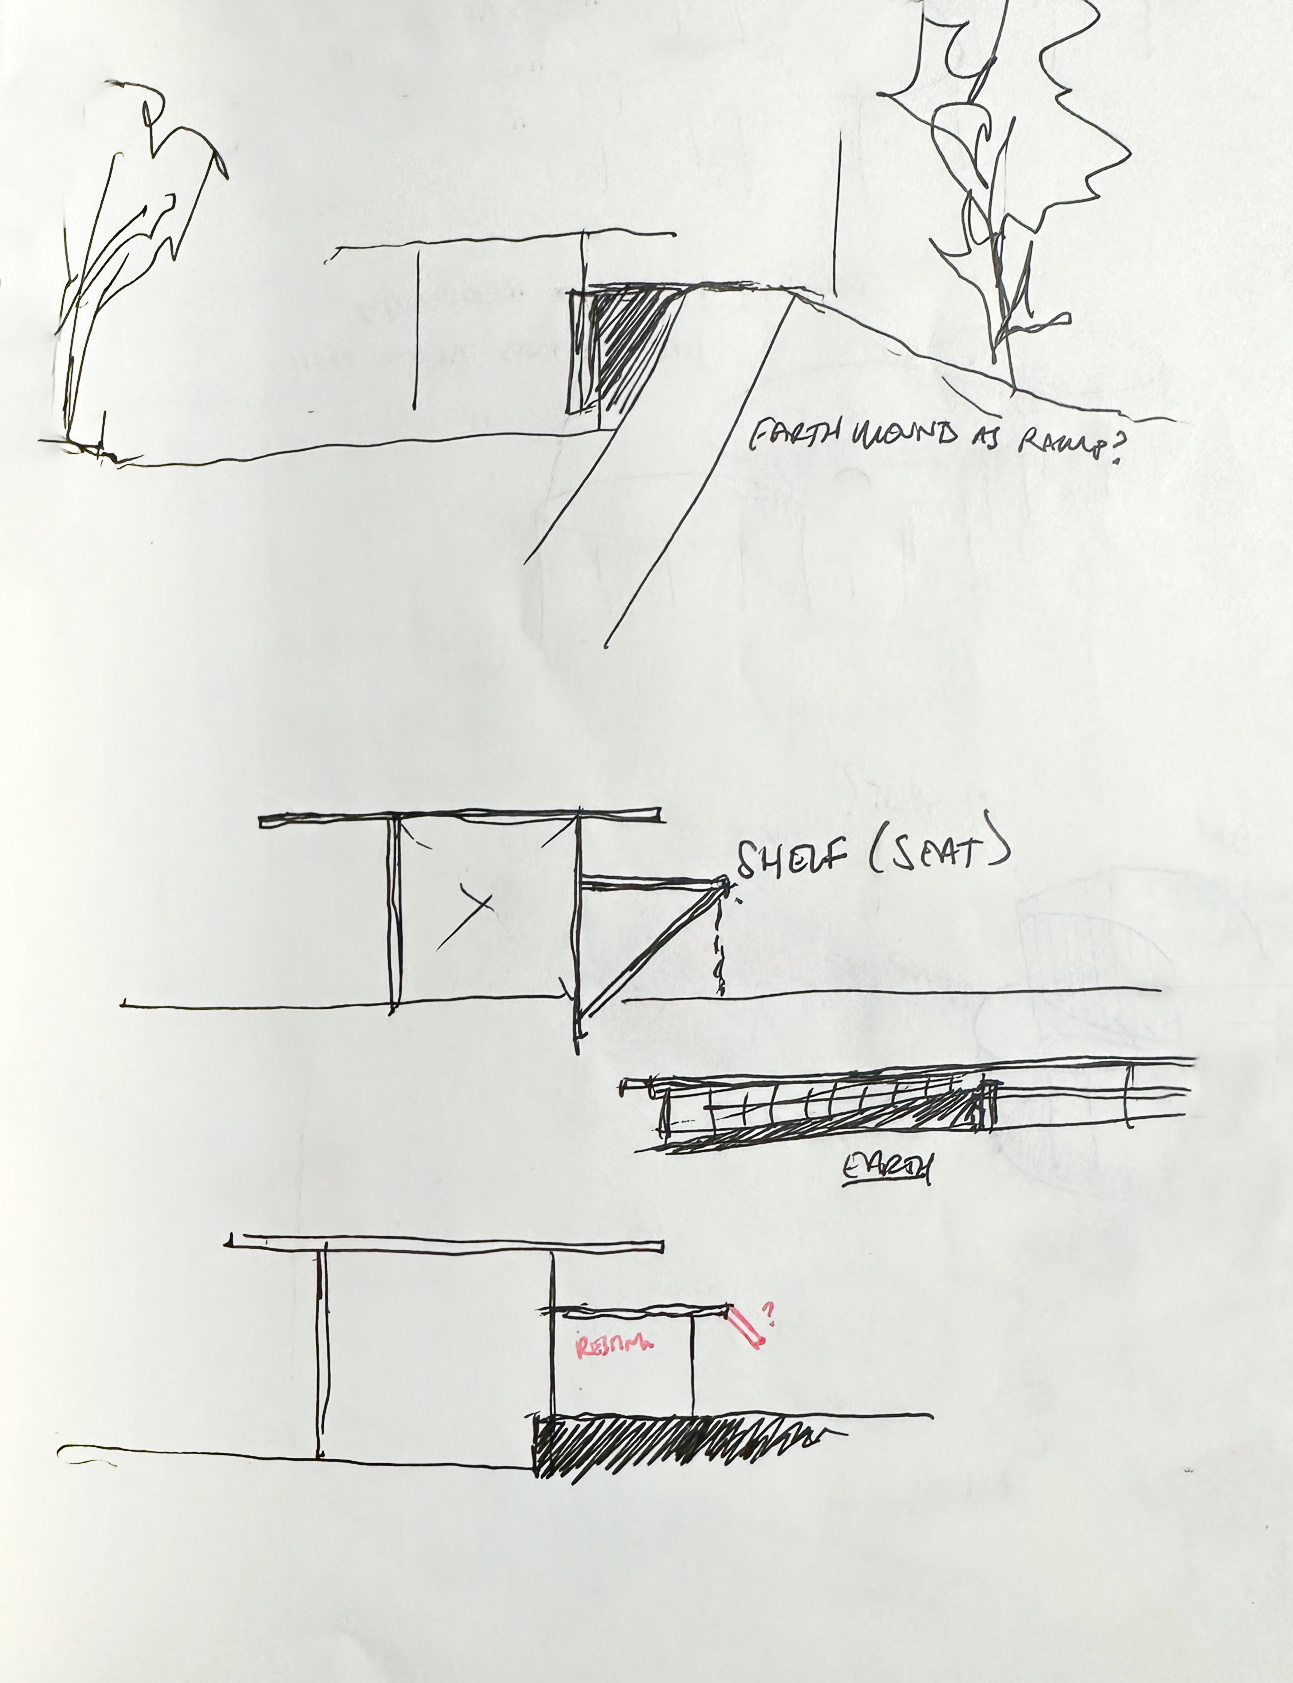 EARTH MOUND AS RAMP?
SHELF (SEAT)
EARTH
?